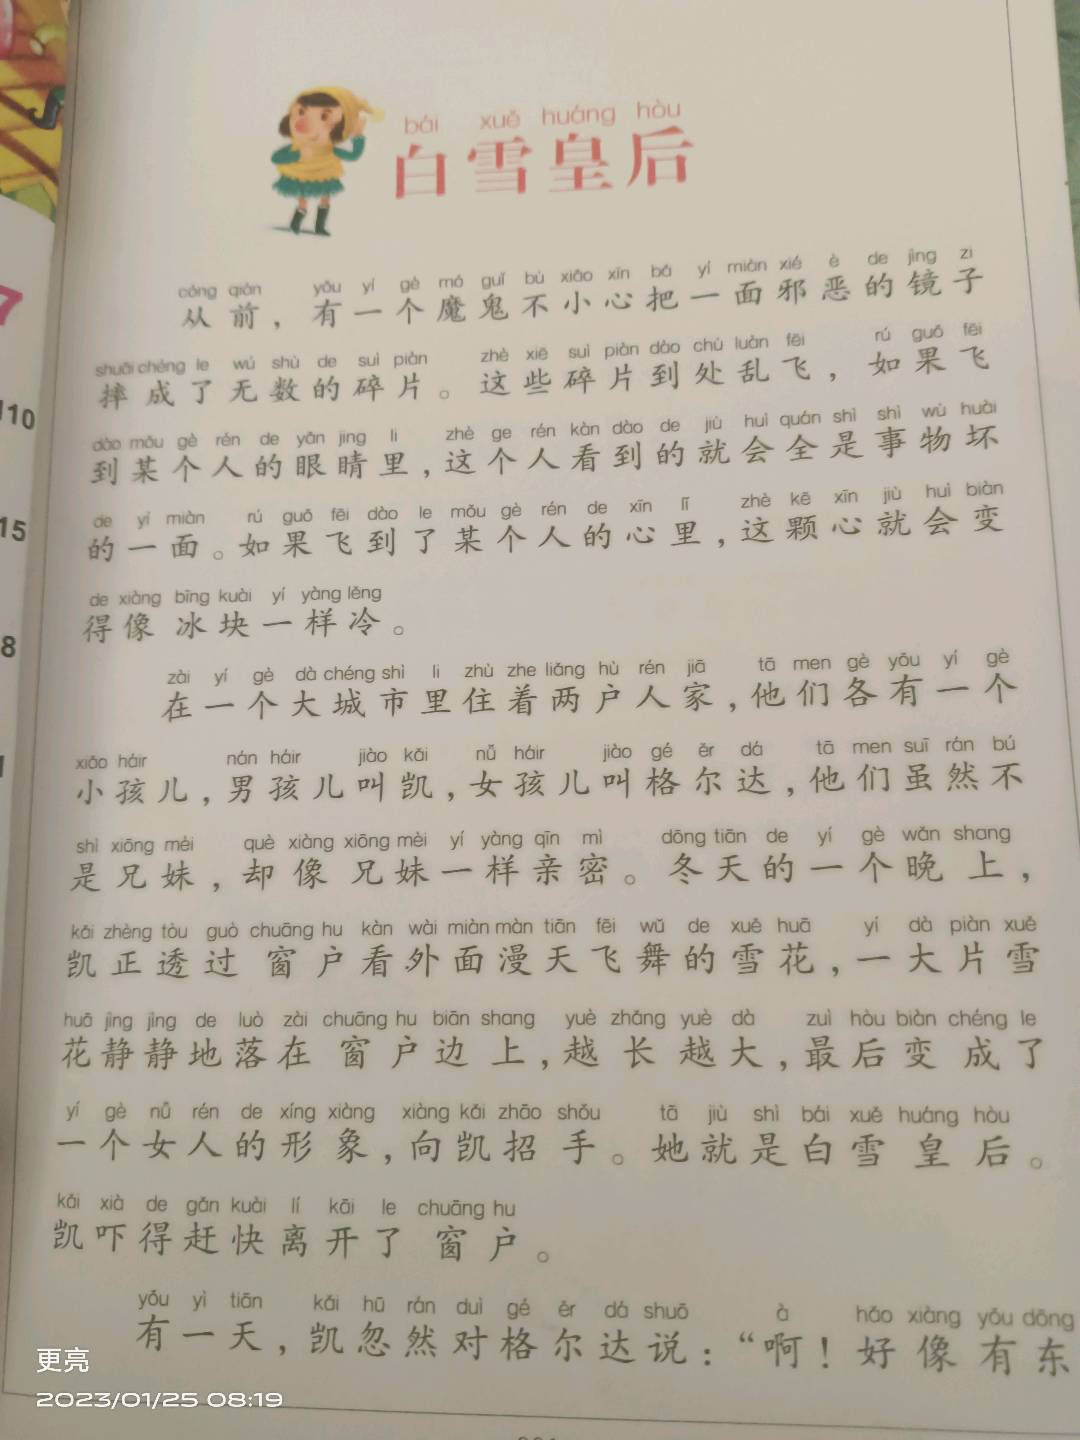 bái xuě huáng hòu
白雪皇后
cóng qián yǒu yí gè mó guǐ bù xiǎo xīn bǎ yí miàn xié è de jìng zi
从前，有一个魔鬼不小心把一面邪恶的镜子
shuāi chéng le wú shù de suì piàn zhè xiē suì piàn dào chù luàn fēi rú guǒ fēi
摔成了无数的碎片。这些碎片到处乱飞，如果飞
dào mǒu gè rén de yǎn jing li zhè ge rén kàn dào de jiù huì quán shì shì wù huài
到某个人的眼睛里，这个人看到的就会全是事物坏
de yí miàn rú guǒ fēi dào le mǒu gè rén de xīn lǐ zhè kē xīn jiù huì biàn
的一面。如果飞到了某个人的心里，这颗心就会变
de xiàng bīng kuài yí yàng lěng
得像冰块一样冷。
zài yí gè dà chéng shì li zhù zhe liǎng hù rén jiā tā men gè yǒu yí gè
在一个大城市里住着两户人家，他们各有一个
xiǎo háir nán háir jiào kǎi nǚ háir jiào gé ěr dá tā men suī rán bú
小孩儿，男孩儿叫凯，女孩儿叫格尔达，他们虽然不
shì xiōng mèi què xiàng xiōng mèi yí yàng qīn mì dōng tiān de yí gè wǎn shang
是兄妹，却像兄妹一样亲密。冬天的一个晚上，
kǎi zhèng tòu guò chuāng hu kàn wài miàn màn tiān fēi wǔ de xuě huā yí dà piàn xuě
凯正透过窗户看外面漫天飞舞的雪花，一大片雪
huā jìng jìng de luò zài chuāng hu biān shang yuè zhǎng yuè dà zuì hòu biàn chéng le
花静静地落在窗户边上，越长越大，最后变成了
yí gè nǚ rén de xíng xiàng xiàng kǎi zhāo shǒu tā jiù shì bái xuě huáng hòu
一个女人的形象，向凯招手。她就是白雪皇后。
kǎi xià de gǎn kuài lí kāi le chuāng hu
凯吓得赶快离开了窗户。
yǒu yì tiān kǎi hū rán duì gé ěr dá shuō à hǎo xiàng yǒu dōng
有一天，凯忽然对格尔达说：“啊！好像有东
7
110
15
8
更亮
2023/01/25 08:19